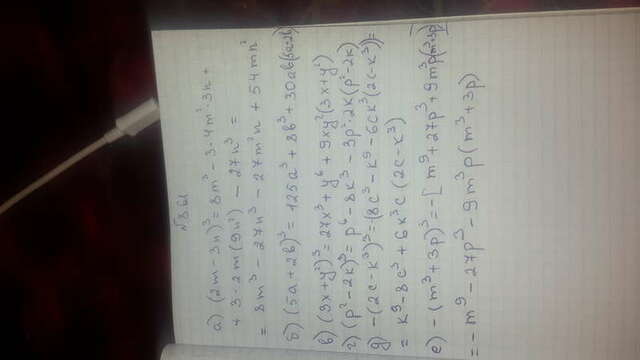 №861
а) (2m - 3n)³ = 8m³ - 3·4m²·3n +
+ 3·2m(9n²) - 27n³ =
= 8m³ - 27n³ - 27m²n + 54mn²
б) (5a + 2b)³ = 125a³ + 8b³ + 30ab(5a+2b)
в) (3x + y²)³ = 27x³ + y⁶ + 9xy²(3x + y²)
г) (p² - 2k)³ = p⁶ - 8k³ - 3p²·2k(p² - 2k)
д) -(2c - k³)³ = -(8c³ - k⁹ - 6ck³(2c - k³)) =
= k⁹ - 8c³ + 6k³c (2c - k³)
е) -(m³ + 3p)³ = -[m⁹ + 27p³ + 9m³p(m³+3p)]
= -m⁹ - 27p³ - 9m³p(m³ + 3p)